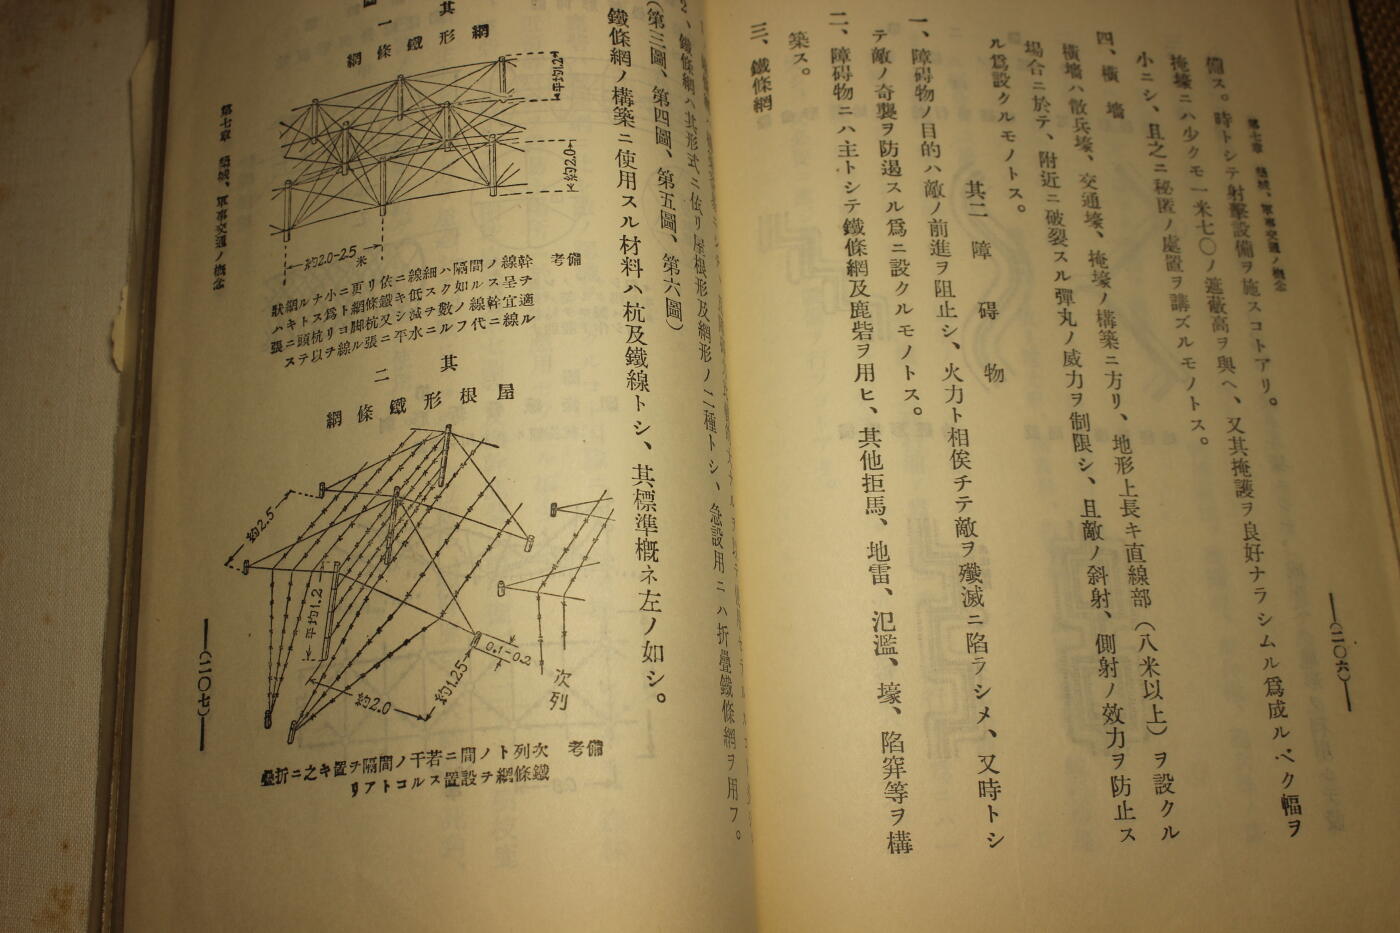 第七章 築城、軍事交通ノ概念
備ス。時トシテ射擊設備ヲ施スコトアリ。
掩壕ニハ少クモ一米七〇ノ遮蔽高ヲ與ヘ、又其掩護ヲ良好ナラシムル爲成ルベク幅ヲ
小ニシ、且之ニ秘匿ノ處置ヲ講ズルモノトス。
四、橫墻
橫墻ハ散兵壕、交通壕、掩壕ノ構築ニ方リ、地形上長キ直線部(八米以上)ヲ設クル
場合ニ於テ、附近ニ破裂スル彈丸ノ威力ヲ制限シ、且敵ノ斜射、側射ノ效力ヲ防止ス
ル爲設クルモノトス。
其二 障碍物
一、障碍物ノ目的ハ敵ノ前進ヲ阻止シ、火力ト相俟チテ敵ヲ殲滅ニ陷ラシメ、又時トシ
テ敵ノ奇襲ヲ防遏スル爲ニ設クルモノトス。
二、障碍物ニハ主トシテ鐵條網及鹿砦ヲ用ヒ、其他拒馬、地雷、氾濫、壕、陷穽等ヲ構
築ス。
三、鐵條網
(二〇六)
2、鐵條網ハ其形式ニ依リ屋根形及網形ノ二種トシ、急設用ニハ折疊鐵條網ヲ用フ。
(第三圖、第四圖、第五圖、第六圖)
鐵條網ノ構築ニ使用スル材料ハ杭及鐵線トシ、其標準槪ネ左ノ如シ。
其一
網形鐵條網
平均1.2
約2.0
約2.0-2.5米
備考
幹線ノ間隔ハ細線ニ依リ更ニ小ナル網狀
ヲ呈スル如ク低キ鐵條網ト爲ストキハ
適宜幹線ノ數ヲ減シ又杭脚ヨリ杭頭ニ張
ル線ニ代フルニ水平ニ張ル線ヲ以テス
其二
屋根形鐵條網
約2.5
平均1.2
約2.0
約1.25
0.1-0.2
次列
備考
次列トノ間ニ若干ノ間隔ヲ置キ之ニ折疊
鐵條網ヲ設置スルコトアリ
第七章 築城、軍事交通ノ概念
(二〇七)